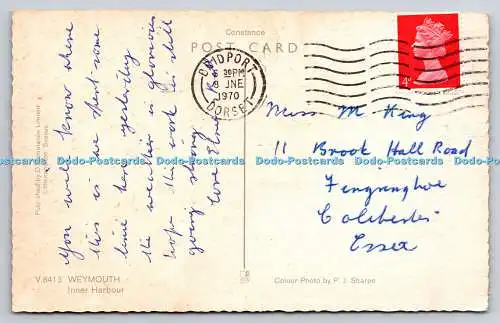 Constance
POST CARD
BRIDPORT
6 30PM
8 JNE
1970
DORSET
4d
You will know where
this is we spent some
time here yesterday
the weather is glorious
hope the work is still
going strong
Love
Miss M King
11 Brook Hall Road
Fingringhoe
Colchester
Essex
V.8413 WEYMOUTH
Inner Harbour
Colour Photo by P. J. Sharpe
Published by D. Constance Limited
Littlehampton Sussex
Dodo-Postcards.com Dodo-Postcards.com Dodo-Postcards.com Dodo-Postcards.com Dodo-Postcards.com